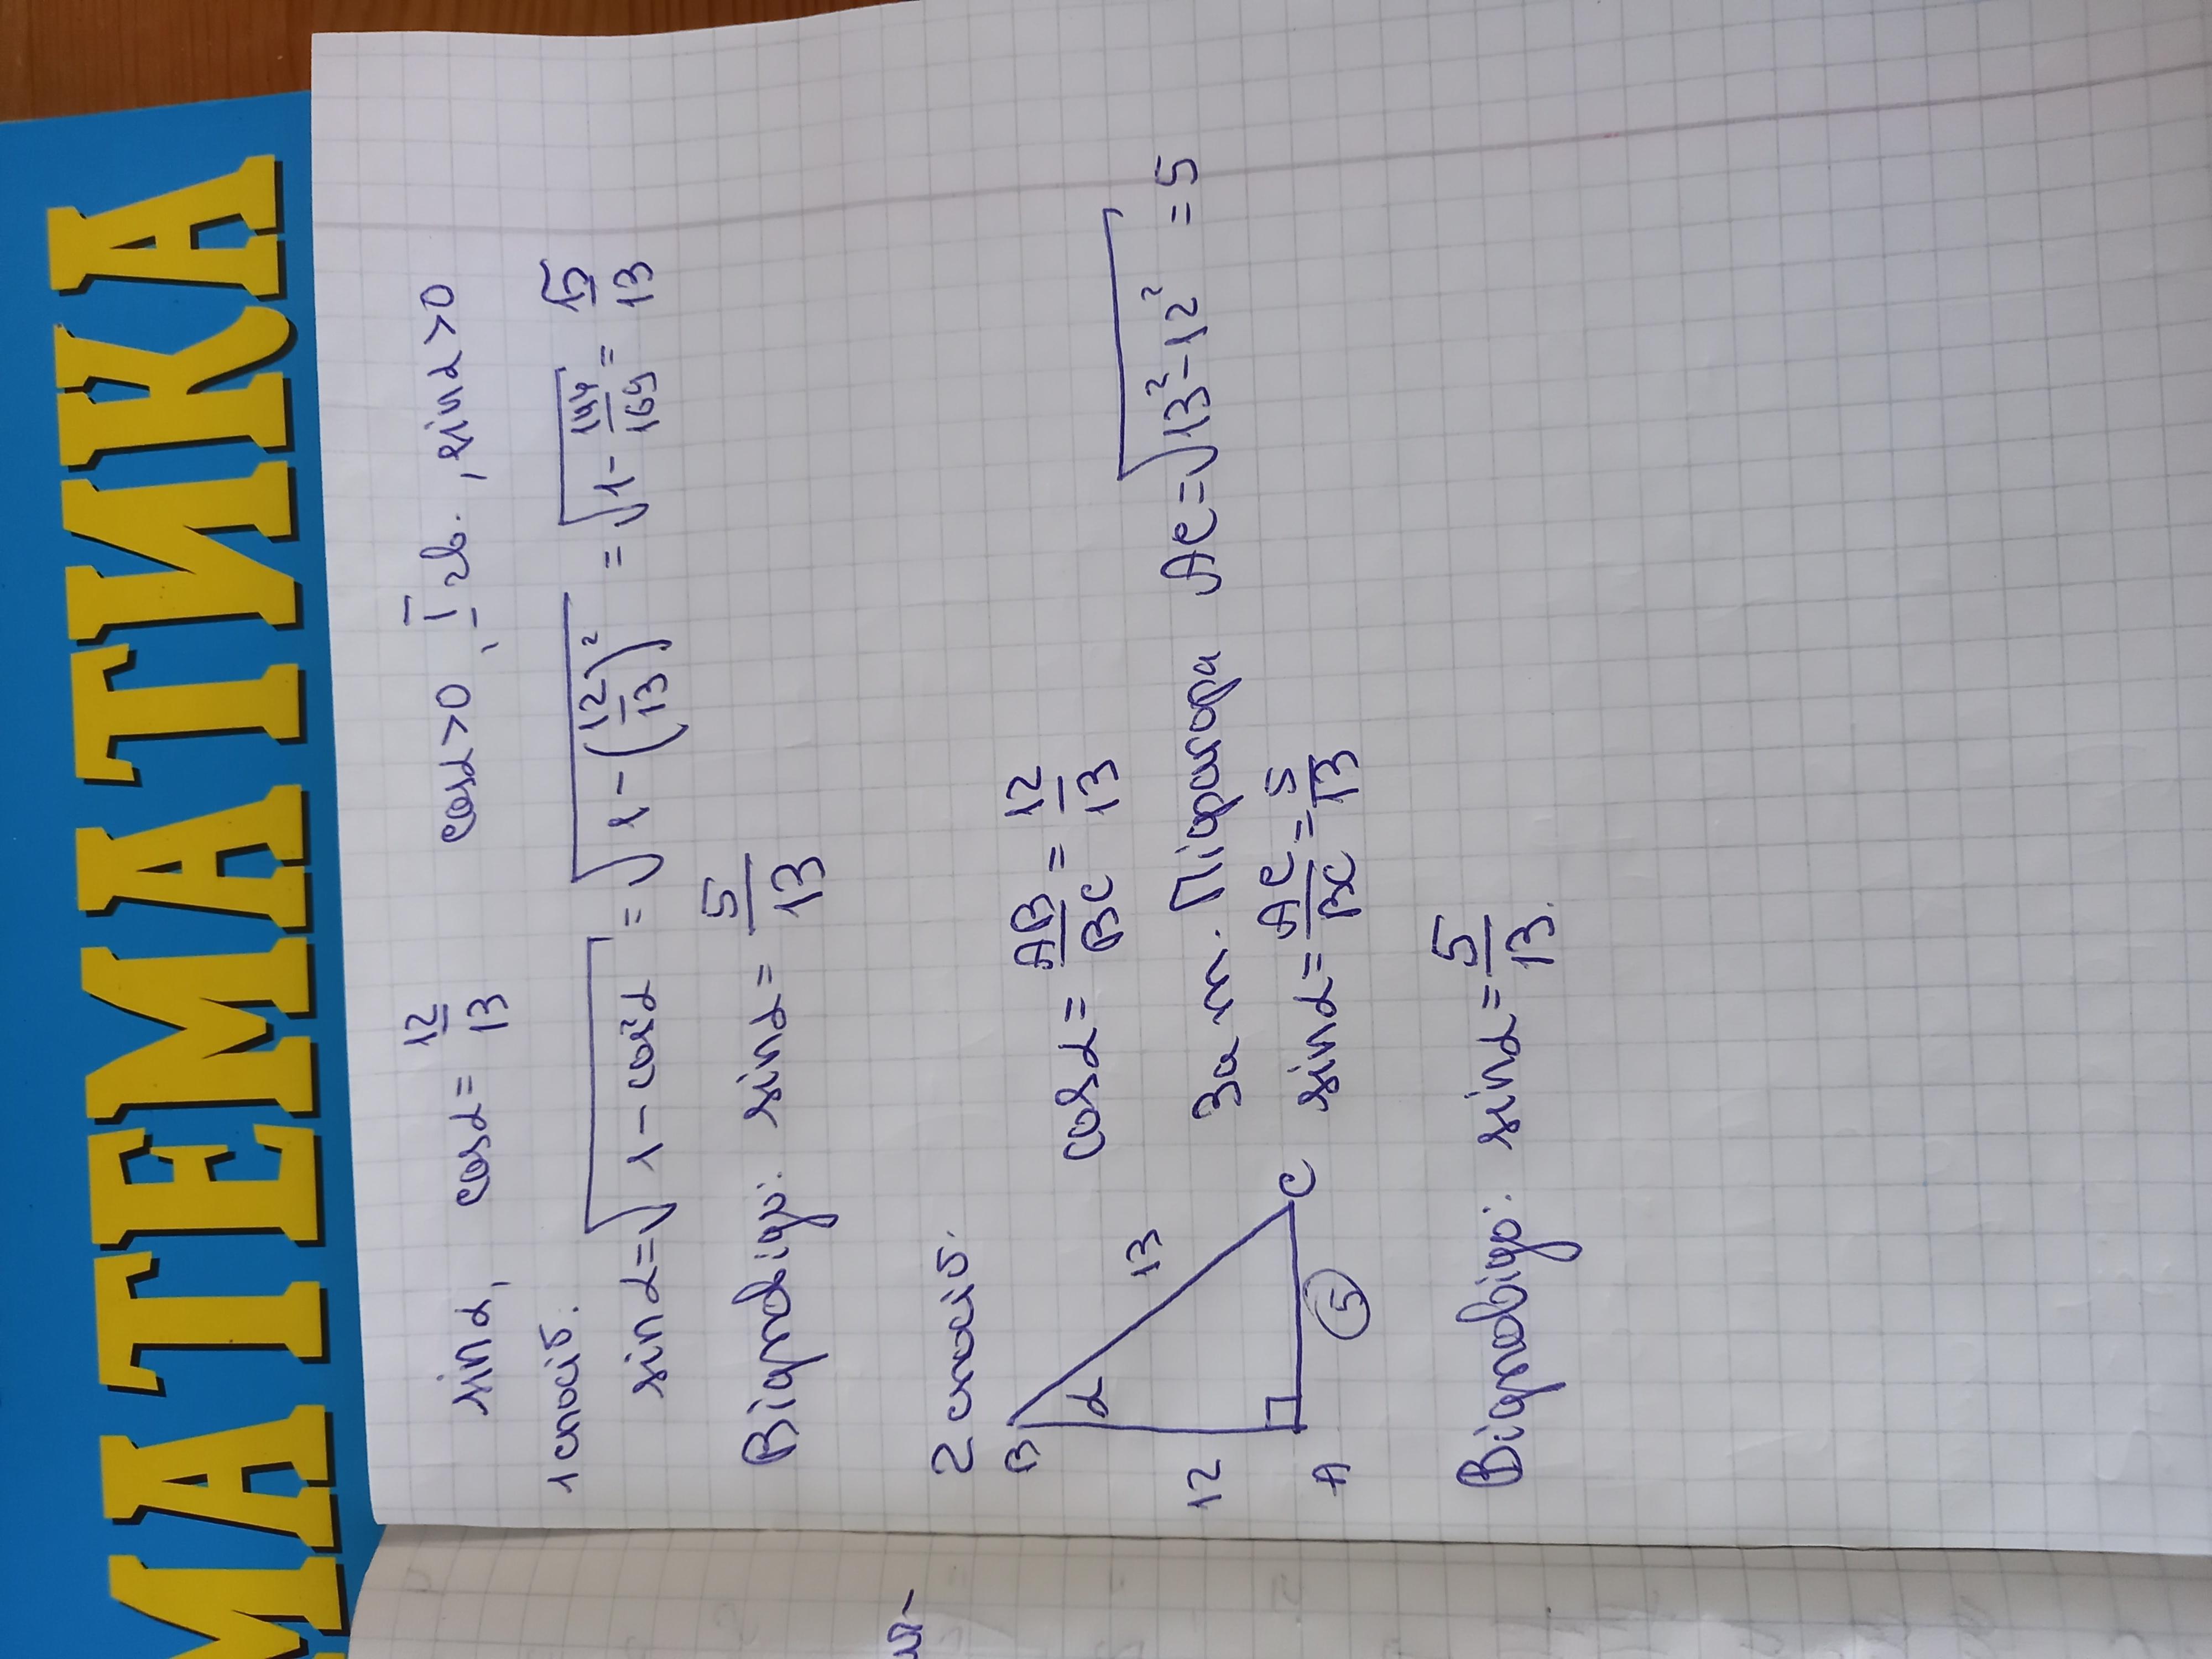 МАТЕМАТИКА
sinα, cosα = 12/13 cosα>0, I чв., sinα>0
1 спосіб.
sinα = √(1 - cos²α) = √(1 - (12/13)²) = √(1 - 144/169) = 5/13
Відповідь: sinα = 5/13
2 спосіб.
cosα = AB/BC = 12/13
B
α
13
12
За т. Піфагора AC = √(13² - 12²) = 5
sinα = AC/BC = 5/13
A
C
5
Відповідь: sinα = 5/13.